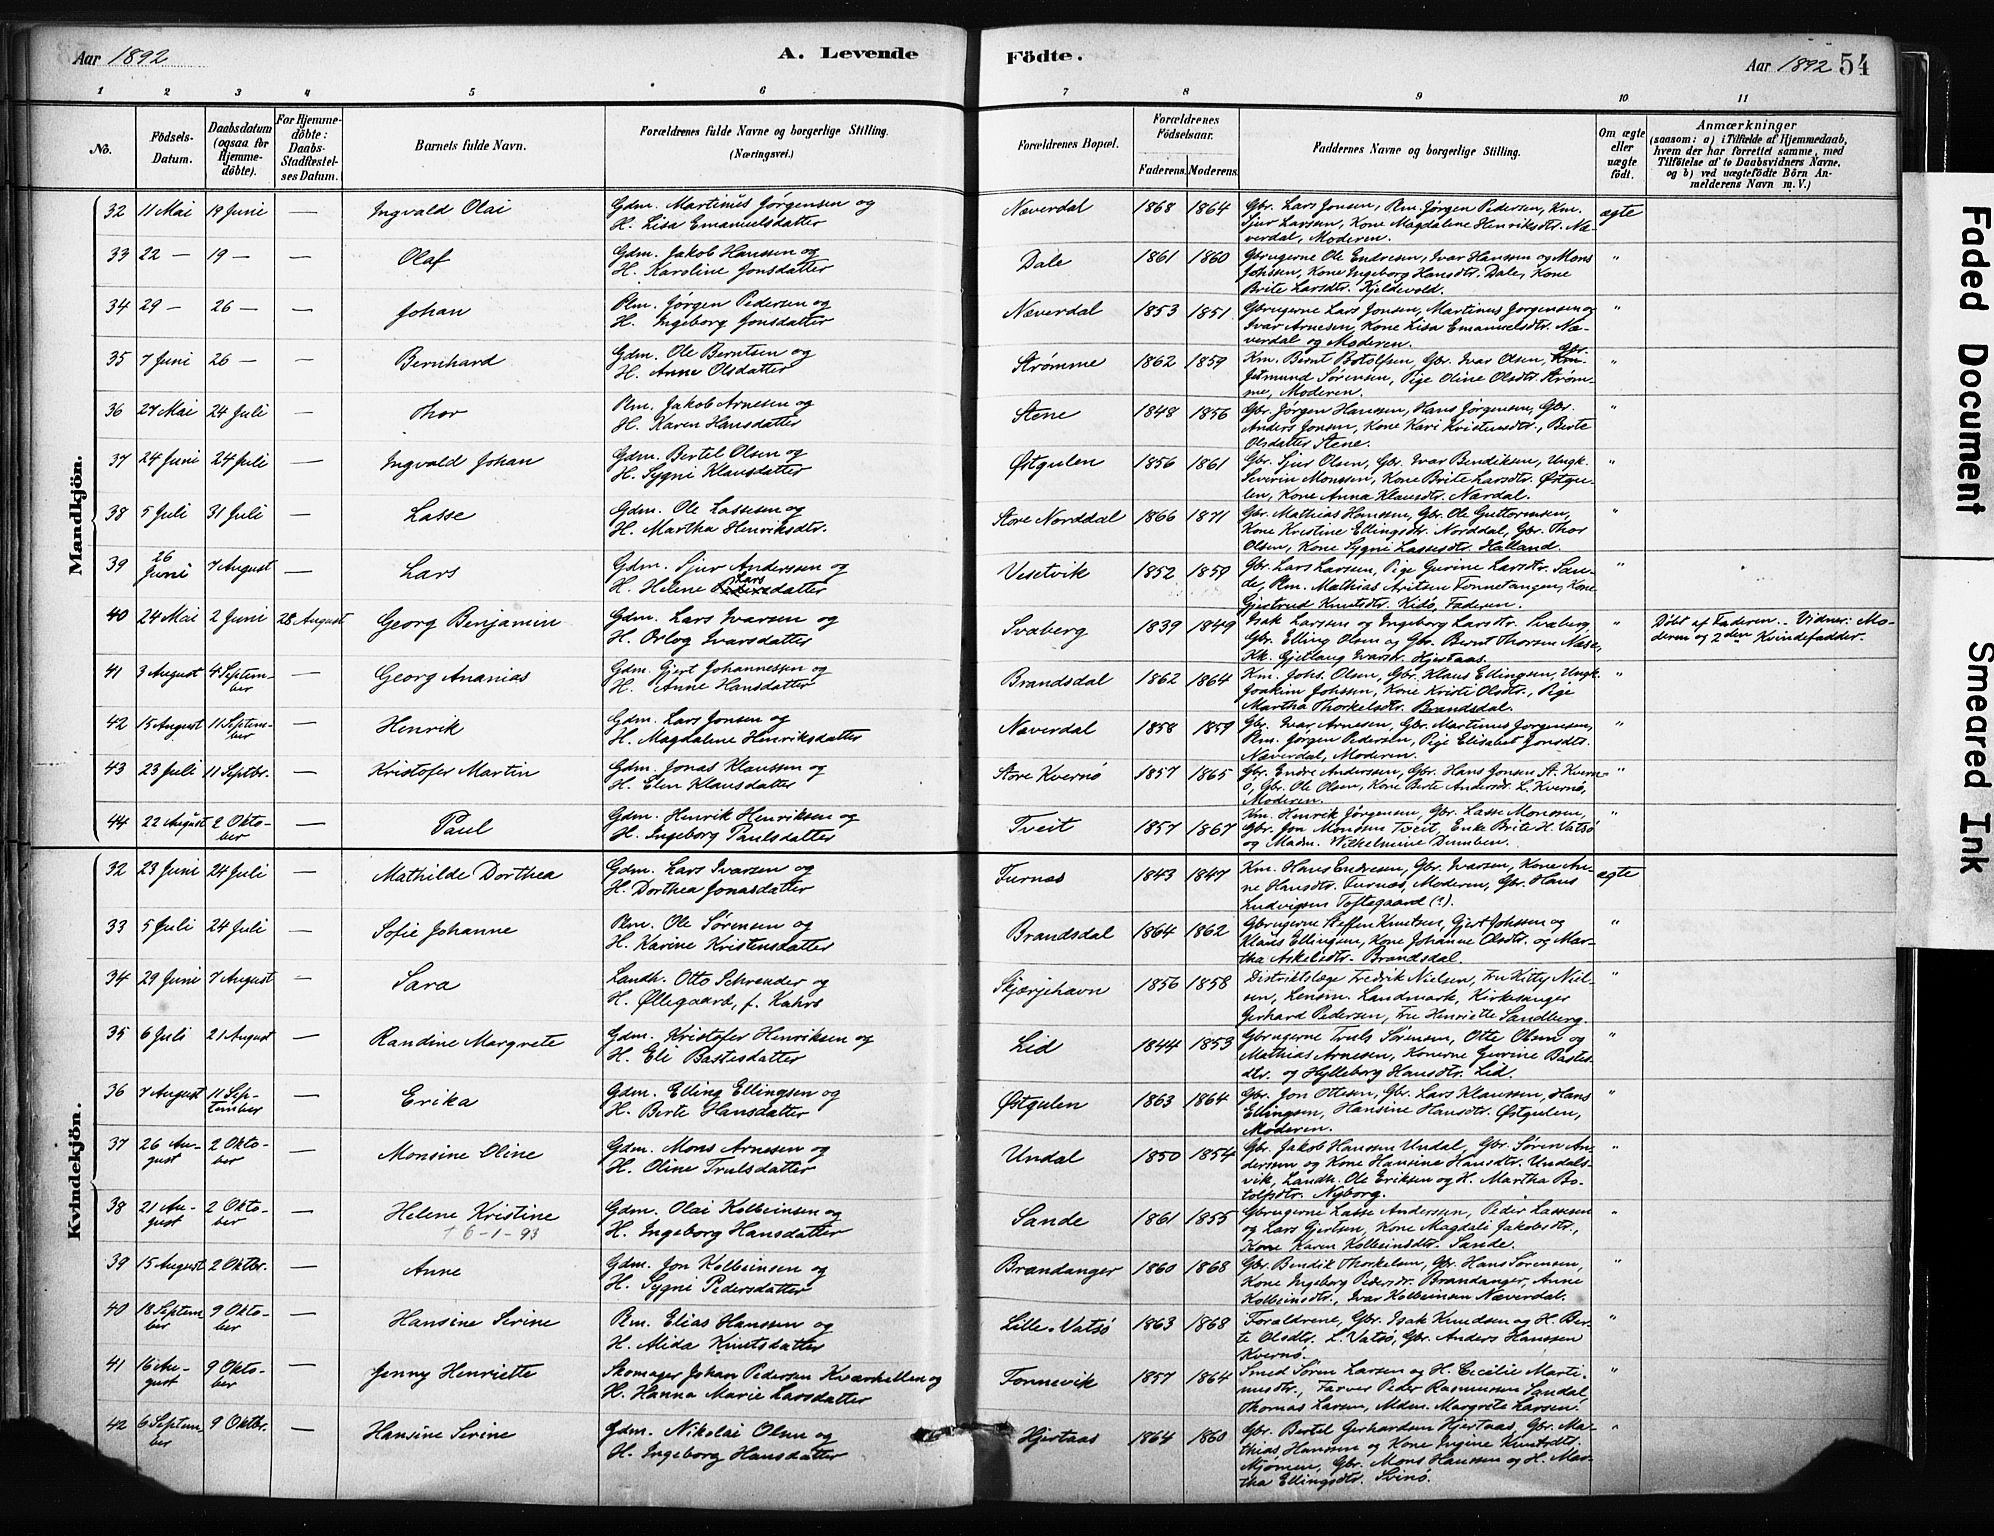 Aar 1892 A. Levende Födte. Aar 1892 54
1 2 3 4 5 6 7 8 9 10 11
No. Födsels-Datum. Daabsdatum (ogsaa for Hjemmedöbte). For Hjemmedöbte: Daabs-Stadfæstelses Datum. Barnets fulde Navn. Forældrenes fulde Navne og borgerlige Stilling. (Næringsvei.) Forældrenes Bopæl. Forældrenes Födselsaar. Faderens. Moderens. Faddernes Navne og borgerlige Stilling. Om ægte eller uægte födt. Anmærkninger (saasom: a) i Tilfælde af Hjemmedaab, hvem der har forrettet samme, med Tilföielse af to Daabsvidners Navne, og b) ved uægtefödte Börn Anmelderens Navn m. V.)
Mandkjön.
32 11 Mai 19 Juni — Ingvald Olai Gdm. Martinus Jørgensen og Næverdal 1868 1864 Gbr. Lars Jonsen, Plm. Jørgen Pedersen, Km. ægte
H. Lisa Emanuelsdatter Sjur Larssen, Kone Magdalene Henriksdtr. Næ-
verdal, Moderen.
33 22 — 19 — — Olaf Gdm. Jakob Hanssen og Dale 1861 1860 Gbrugerne Ole Endresen, Ivar Hanssen og Mons "
H. Karoline Jonsdatter Johssen, Kone Ingeborg Hansdtr. Dale, Kone
Brite Larsdtr. Kjeldevold.
34 29 — 26 — — Johan Plm. Jørgen Pedersen og Næverdal 1853 1851 Gbrugerne Lars Jonsen, Martinus Jørgensen og "
H. Ingeborg Jonsdatter Ivar Arnesen, Kone Lisa Emanuelsdtr. Næ-
verdal og Moderen.
35 7 Juni 26 — — Bernhard Gdm. Ole Berntsen og Strømme 1862 1859 Km. Bernt Botolfsen, Gbr. Ivar Olsen, Gbr. "
H. Anne Olsdatter Jetmund Sørensen, Pige Oline Olsdtr. Strøm-
me, Moderen.
36 27 Mai 24 Juli — Thor Plm. Jakob Arnesen og Stene 1848 1856 Gbr. Jørgen Hanssen, Hans Jørgensen, Gbr. "
H. Karen Hansdatter Anders Jonsen, Kone Kari Kristensdtr., Berte
Olsdatter Stene.
37 24 Juni 24 Juli — Ingvald Johan Gdm. Bertel Olsen og Østgulen 1856 1861 Gbr. Sjur Olsen, Gbr. Ivar Bendiksen, Ungk. "
H. Sygni Klausdatter Severin Monssen, Kone Brite Larsdtr. Østgu-
len, Kone Anna Klausdtr. Nærdal.
38 5 Juli 31 Juli — Lasse Gdm. Ole Lassesen og Store Norddal 1866 1871 Gbr. Mathias Hanssen, Gbr. Ole Guttormsen, "
H. Martha Henriksdtr. Kone Kristine Ellingsdtr. Norddal, Gbr. Thor
Olsen, Kone Sygni Lassesdtr. Halland.
39 26 Juni 7 August — Lars Gdm. Sjur Anderssen og Vesetvik 1852 1859 Gbr. Lars Larssen, Pige Gurine Larsdtr. San- "
H. Helene Larsdatter de, Plm. Mathias Aritsen Tonnetangen, Kone
Gjertrud Knutsdtr. Kidø, Faderen.
40 24 Mai 2 Juni 28 August Georg Benjamin Gdm. Lars Ivarsen og Svaberg 1839 1849 Isak Larssen og Ingeborg Larsdtr. Svaberg " Döbt af Faderen. - Vidner: Mo-
H. Orlog Ivarsdatter Gbr. Elling Olsen og Gbr. Bernt Thorsen Nase, deren og 2den Kvindefadder.
Kk. Gjetlaug Ivarsdtr. Hjertaas.
41 3 August 4 September — Georg Ananias Gdm. Gjert Johannessen og Brandsdal 1862 1864 Km. Johs. Olsen, Gbr. Klaus Ellingsen, Ungk. "
H. Anne Hansdatter Joakim Johssen, Kone Kristi Olsdtr., Pige
Martha Thorkelsdtr. Brandsdal.
42 15 August 11 September — Henrik Gdm. Lars Jonsen og Næverdal 1858 1859 Gbr. Ivar Arnesen, Gbr. Martinus Jørgensen, "
H. Magdalene Henriksdatter Plm. Jørgen Pedersen, Pige Elisabet Jonsdtr.
Næverdal, Moderen.
43 23 Juli 11 Septbr. — Kristofer Martin Gdm. Jonas Klaussen og Store Kvernø 1857 1865 Gbr. Endre Anderssen, Gbr. Hans Jonsen St. Kvern- "
H. Elen Klausdatter ø, Gbr. Ole Olsen, Kone Berte Andersdtr. L. Kvernø,
Moderen.
44 22 August 2 Oktober — Paul Gdm. Henrik Henriksen og Tveit 1857 1867 Km. Henrik Jørgensen, Gbr. Lasse Monssen, "
H. Ingeborg Paulsdatter Gbr. Jon Monssen Tveit, Enke Brite H. Vatsø
og Madm. Wilhelmine Dumben.
Kvindekjön.
32 23 Juni 24 Juli — Mathilde Dorthea Gdm. Lars Ivarsen og Furnes 1843 1847 Km. Hans Endresen, Gbr. Ivarsen, Kone An- ægte
H. Dorthea Jonasdatter ne Hansdtr. Furnes, Moderen, Gbr. Hans
Ludvigsen Toftegaard (?).
33 5 Juli 24 Juli — Sofie Johanne Plm. Ole Sørensen og Brandsdal 1864 1862 Gbrugerne Steffen Knutsen, Gjert Johssen og "
H. Karine Kristensdatter Klaus Ellingsen, Kone Johanne Olsdtr. og Mar-
tha Askelsdtr. Brandsdal.
34 29 Juni 7 August — Sara Landh. Otto Schreuder og Skjærjehavn 1856 1858 Distriktslæge Fredrik Nielsen, Fru Kitty Niel- "
H. Øllegaard, f. Kahrs sen, Lensm. Landmark, Kirkesanger
Gerhard Pedersen, Fru Henriette Sandberg.
35 6 Juli 21 August — Randine Margrete Gdm. Kristofer Henriksen og Lid 1844 1853 Gbrugerne Truls Sørensen, Otte Olsen og "
H. Eli Bastesdatter Mathias Arnesen, Konerne Gurine Bastes-
dtr. og Hylleborg Hansdtr. Lid.
36 7 August 11 September — Erika Gdm. Elling Ellingsen og Østgulen 1863 1864 Gbr. Jon Ottesen, Gbr. Lars Klaussen, Hans "
H. Birte Hansdatter Ellingsen, Hansine Hansdtr. Østgulen,
Moderen.
37 26 August 2 Oktober — Monsine Oline Gdm. Mons Arnesen og Undal 1850 1854 Gbr. Jakob Hanssen Undal, Gbr. Søren An- "
H. Oline Trulsdatter dersen og Kone Hansine Hansdtr. Undals-
vik, Landh. Ole Eriksen og H. Martha Bo-
tolfsdtr. Nyborg.
38 21 August 2 Oktober — Helene Kristine Gdm. Olai Kolbeinsen og Sande 1861 1855 Gbrugerne Lasse Anderssen, Peder Lassesen "
† 6-1-93 H. Ingeborg Hansdatter og Lars Gjertsen, Kone Magdali Jakobsdtr.,
Kone Karen Kolbeinsdtr. Sande.
39 15 August 2 Oktbr. — Anne Gdm. Jon Kolbeinsen og Brandanger 1860 1868 Gbr. Bendik Thorkelsen, Gbr. Hans Sørensen, "
H. Sygni Pedersdatter Kone Ingeborg Pedersdtr. Brandanger, Anne
Kolbeinsdtr., Ivar Kolbeinsen Næverdal.
40 18 September 9 Oktober — Hansine Serine Plm. Elias Hanssen og Lille-Vatsø 1863 1868 Forældrene, Gbr. Isak Knudsen og H. Ber- "
H. Alida Knutsdatter te Olsdtr. L. Vatsø, Gbr. Anders Hanssen
Kvernø.
41 16 August 9 Oktober — Jenny Henriette Skomager Johan Pedersen Kværhellen og Fonnevik 1857 1864 Smed Søren Larsen og H. Cecilie Marti- "
H. Hanna Marie Larsdatter nusdtr., Farver Peder Rasmussen Sandal,
Thomas Larsen, Mdm. Margrete Larsen.
42 6 September 9 Oktbr. — Hansine Serine Gdm. Nikolai Olsen og Hjertaas 1864 1860 Gbr. Bertel Gerhardsen Hjertaas, Gbr. Ma- "
H. Ingeborg Hansdatter thias Hanssen og Kone Ingine Knutsdtr.
Mjømen, Gbr. Mons Hanssen og H. Mar-
tha Ellingsdtr. Svinø.
Faded Document
Smeared Ink